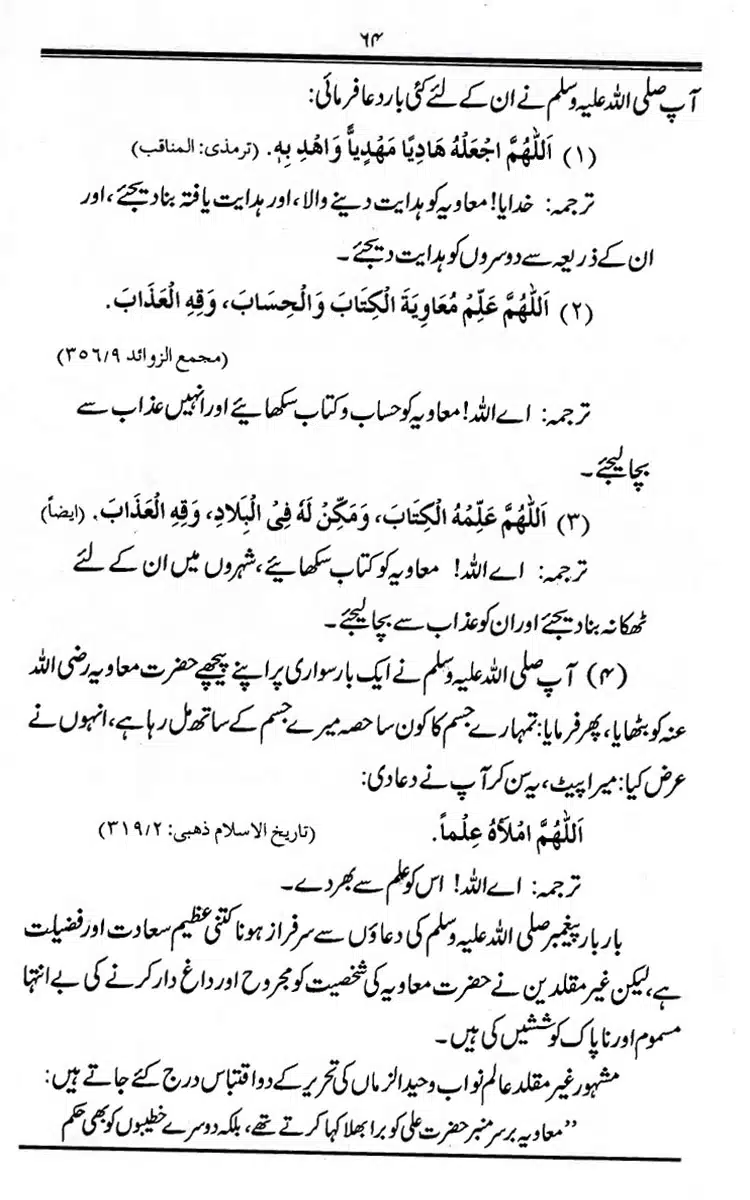 ۶۴
آپ صلی اللہ علیہ وسلم نے ان کے لئے کئی بار دعا فرمائی:
(۱) اَللّٰهُمَّ اجْعَلْهُ هَادِيًا مَهْدِياًّ وَاهْدِ بِهٖ. (ترمذی: المناقب)
ترجمہ: خدایا! معاویہ کو ہدایت دینے والا، اور ہدایت یافتہ بنا دیجئے، اور
ان کے ذریعہ سے دوسروں کو ہدایت دیجئے۔
(۲) اَللّٰهُمَّ عَلِّمْ مُعَاوِيَةَ الْكِتَابَ وَالْحِسَابَ، وَقِهِ الْعَذَابَ.
(مجمع الزوائد ۳۵۶/۹)
ترجمہ: اے اللہ! معاویہ کو حساب و کتاب سکھائیے اور انہیں عذاب سے
بچا لیجئے۔
(۳) اَللّٰهُمَّ عَلِّمْهُ الْكِتَابَ، وَمَكِّنْ لَهُ فِي الْبِلَادِ، وَقِهِ الْعَذَابَ. (ایضاً)
ترجمہ: اے اللہ! معاویہ کو کتاب سکھائیے، شہروں میں ان کے لئے
ٹھکانہ بنا دیجئے اور ان کو عذاب سے بچا لیجئے۔
(۴) آپ صلی اللہ علیہ وسلم نے ایک بار سواری پر اپنے پیچھے حضرت معاویہ رضی اللہ
عنہ کو بٹھایا، پھر فرمایا: تمہارے جسم کا کون سا حصہ میرے جسم کے ساتھ مل رہا ہے، انہوں نے
عرض کیا: میرا پیٹ، یہ سن کر آپ نے دعا دی:
اَللّٰهُمَّ امْلَأْهُ عِلْماً. (تاریخ الاسلام ذهبی: ۳۱۹/۲)
ترجمہ: اے اللہ! اس کو علم سے بھر دے۔
بار بار پیغمبر صلی اللہ علیہ وسلم کی دعاؤں سے سرفراز ہونا کتنی عظیم سعادت اور فضیلت
ہے، لیکن غیر مقلدین نے حضرت معاویہ کی شخصیت کو مجروح اور داغ دار کرنے کی بے انتہا
مسموم اور ناپاک کوششیں کی ہیں۔
مشہور غیر مقلد عالم نواب وحید الزماں کی تحریر کے دو اقتباس درج کئے جاتے ہیں:
”معاویہ برسر منبر حضرت علی کو برا بھلا کہا کرتے تھے، بلکہ دوسرے خطیبوں کو بھی حکم